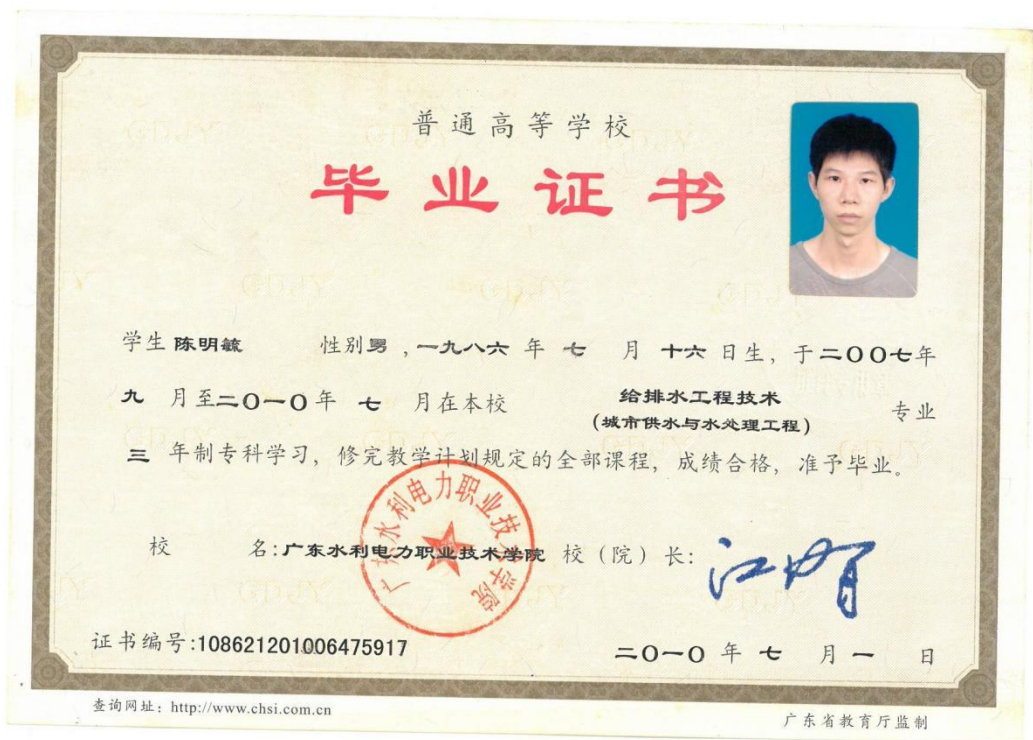 普通高等学校
毕业证书
学生 陈明毓 性别男，一九八六 年 七 月 十六 日生，于二00七年
九 月至二0一0年 七 月在本校 给排水工程技术 专业
(城市供水与水处理工程)
三 年制专科学习，修完教学计划规定的全部课程，成绩合格，准予毕业。
广东水利电力职业技术学院
校 名:广东水利电力职业技术学院 校（院）长:
证书编号:108621201006475917
二0一0 年 七 月 一 日
查询网址：http://www.chsi.com.cn
广东省教育厅监制